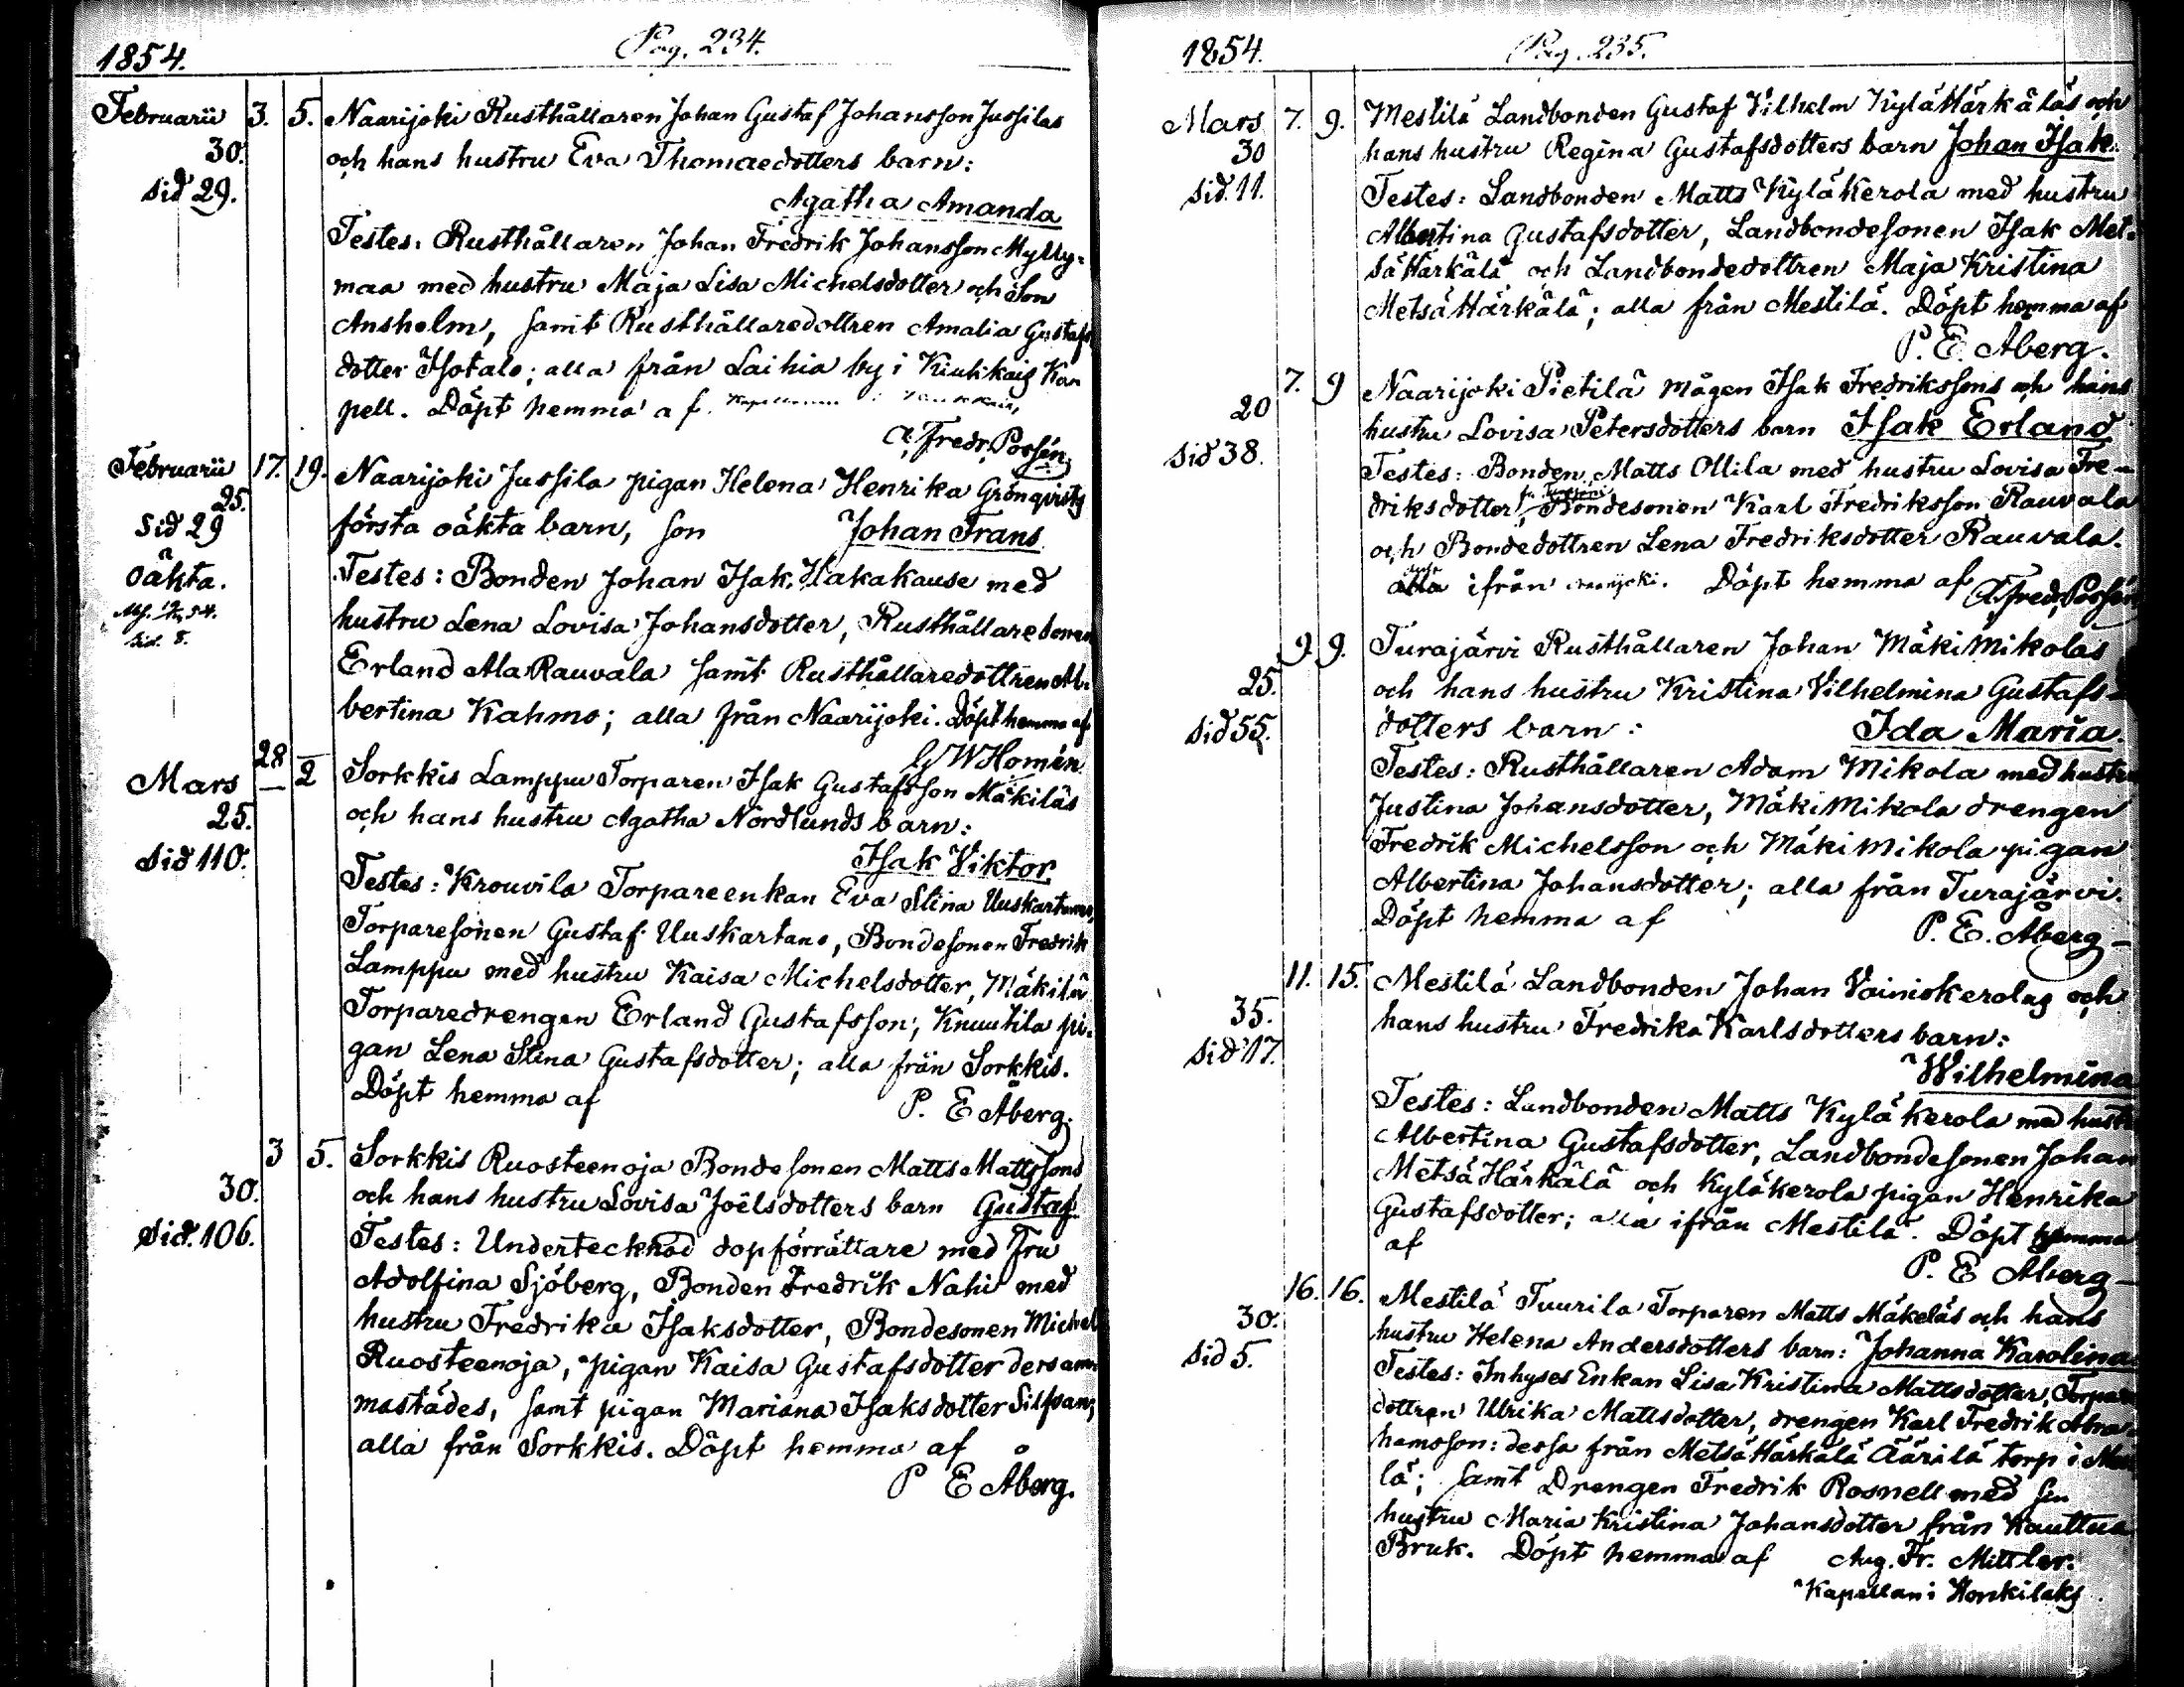 1854.
Pag. 234.
Februarii 3. 5. Naarijoki Rusthållaren Johan Gustaf Johansson Jussilas
30. och hans hustru Eva Thomaedotters barn:
sid 29.
Agatha Amanda
Testes: Rusthållaren Johan Fredrik Johansson Mylly-
maa med hustru Maja Lisa Michelsdotter och Son
Ansholm, samt Rusthållaredottren Amalia Gustafs
dotter Isotalo; alla från Laihia by i Kiukkais Ka
pell. Döpt hemma af
A. Fredr. Porsén
Februarii 17. 19. Naarijoki Jussila pigan Helena Henrika Grönqvists
25. första oäkta barn, son Johan Frans
Sid 29
oäkta.
Sid. 8.
Testes: Bonden Johan Isak Hakakause med
hustru Lena Lovisa Johansdotter, Rusthållaresonen
Erland AlaRauvala samt Rusthållaredottren Al-
bertina Kahmo; alla från Naarijoki. Döpt hemma af
G W Homén
28 2 Sorkkis Lamppu Torparen Isak Gustafsson Mäkiläs
Mars
25. och hans hustru Agatha Nordlunds barn:
sid 110.
Isak Viktor
Testes: Krouvila Torpareenkan Eva Stina Uuskartano,
Torparesonen Gustaf Uuskartano, Bondesonen Fredrik
Lamppu med hustru Kaisa Michelsdotter, Mäkilä
Torparedrengen Erland Gustafsson, Knuutila pi-
gan Lena Stina Gustafsdotter; alla från Sorkkis.
Döpt hemma af P. E Åberg.
3 5. Sorkkis Ruosteenoja Bondesonen Matts Mattssons
30. och hans hustru Lovisa Joëlsdotters barn Gustaf
Sid. 106.
Testes: Undertecknad dopförrättare med Fru
Adolfina Sjöberg, Bonden Fredrik Nahi med
hustru Fredrika Isaksdotter, Bondesonen Michel
Ruosteenoja, pigan Kaisa Gustafsdotter dersam
mastädes, samt pigan Mariana Isaksdotter Silfvan;
alla från Sorkkis. Döpt hemma af
P E Åberg.
1854.
Pag. 235.
Mars 7. 9. Mestilä Landbonden Gustaf Vilhelm KyläHärkäläs och
30 hans hustru Regina Gustafsdotters barn Johan Isak.
sid. 11. Testes: Landbonden Matts Kyläkerola med hustru
Albertina Gustafsdotter, Landbondesonen Isak Met-
säHärkälä och Landbondedottren Maja Kristina
MetsäHärkälä; alla från Mestilä. Döpt hemma af
P. E. Åberg.
7. 9 Naarijoki Pietilä mågen Isak Fredrikssons och hans
20 hustru Lovisa Petersdotters barn Isak Erland
sid 38. Testes: Bonden Matts Ollila med hustru Lovisa Fre-
driksdotter, Bondesonen Karl Fredriksson Rauvala
och Bondedottren Lena Fredriksdotter Rauvala.
alla ifrån Naarijoki. Döpt hemma af A. Fredr. Porsén
9. 9. Turajärvi Rusthållaren Johan MäkiMikolas
25. och hans hustru Kristina Vilhelmina Gustafs-
sid 55. dotters barn: Ida Maria.
Testes: Rusthållaren Adam Mikola med hustru
Justina Johansdotter, MäkiMikola drengen
Fredrik Michelsson och MäkiMikola pigan
Albertina Johansdotter; alla från Turajärvi.
Döpt hemma af P. E. Åberg
11. 15. Mestilä Landbonden Johan Vainiokerolas och
35. hans hustru Fredrika Karlsdotters barn:
sid 17.
Wilhelmina
Testes: Landbonden Matts Kyläkerola med hustru
Albertina Gustafsdotter, Landbondesonen Johan
MetsäHärkälä och Kyläkerola pigan Henrika
Gustafsdotter; alla ifrån Mestilä. Döpt hemma
af
P. E Åberg
16. 16. Mestilä Tuurila Torparen Matts Mäkeläs och hans
30. hustru Helena Andersdotters barn: Johanna Karolina
sid 5. Testes: Inhyses Enkan Lisa Kristina Mattsdotter, Torpare
dottren Ulrika Mattsdotter, drengen Karl Fredrik Abra-
hamsson: dessa från MetsäHärkälä Äärilä torp i Mesti
lä; samt Drengen Fredrik Rosnell med sin
hustru Maria Kristina Johansdotter från Kauttua
Bruk. Döpt hemma af Aug. Fr. Mittler.
Kapellan i Honkilaks